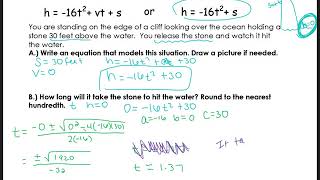 h = -16t² + vt + s or h = -16t² + s
You are standing on the edge of a cliff looking over the ocean holding a
stone 30 feet above the water. You release the stone and watch it hit
the water.
A.) Write an equation that models this situation. Draw a picture if needed.
S = 30 feet h = -16t² + 30
V = 0 h = -16t² + 30
B.) How long will it take the stone to hit the water? Round to the nearest
hundredth. t h=0 0 = -16t² + 30
a=-16 b=0 C=30
t = -0 ± √0² - 4(-16)(30)
2(-16)
± √1920
-32
t = 1.37
It ta
h=0